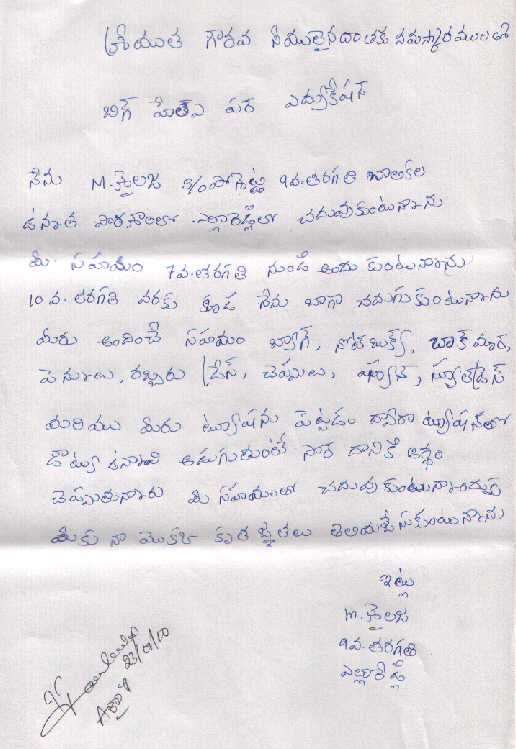 శ్రీయుత గౌరవ నీయులైన దాతకు నమస్కారములతో
బిగ్ హెల్ప్ ఫర్ ఎడ్యుకేషన్
నేను M.శైలజ D/o పోశెట్టి 9వ.తరగతి బాలికల
ఉన్నత పాఠశాలలో ఎల్లారెడ్డిలో చదువుకుంటున్నాను
మీ సహయం 7వ.తరగతి నుండి అందు కుంటున్నాను
10 వ. తరగతి వరకు కూడ నేను బాగా చదువుకుంటున్నాను
మీరు అందించే సహయం బ్యాగ్, నోట్ బుక్స్,
పెన్నులు, రబ్బరు చెప్పులు, స్కూల్ డ్రెస్
మరియు మీరు ట్యూషను పెట్టడం ద్వారా ట్యూషన్ లో
డౌట్స్ ఉన్నావి అడుగుతుంటే సార్ దానికి అర్థం
చెప్పుతున్నారు మీ సహయంలో చదువు కుంటున్నందుకు
మీకు నా మొక్క కృతజ్ఞతలు తెలియజేసుకుంటున్నాను
ఇట్లు
M.శైలజ
9వ.తరగతి
ఎల్లారెడ్డి